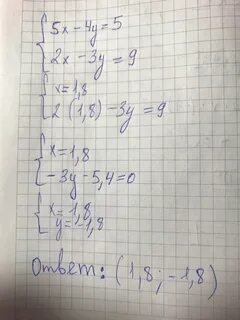 5x - 4y = 5
2x - 3y = 9
x = 1,8
2 (1,8) - 3y = 9
x = 1,8
-3y - 5,4 = 0
x = 1,8
y = -1,8
Ответ: (1,8; -1,8)